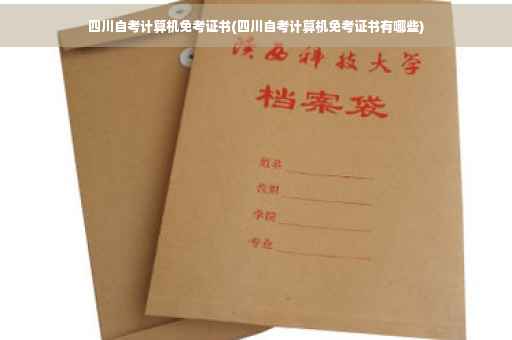 四川自考计算机免考证书(四川自考计算机免考证书有哪些)
陕西科技大学
档案袋
姓名
学院
专业